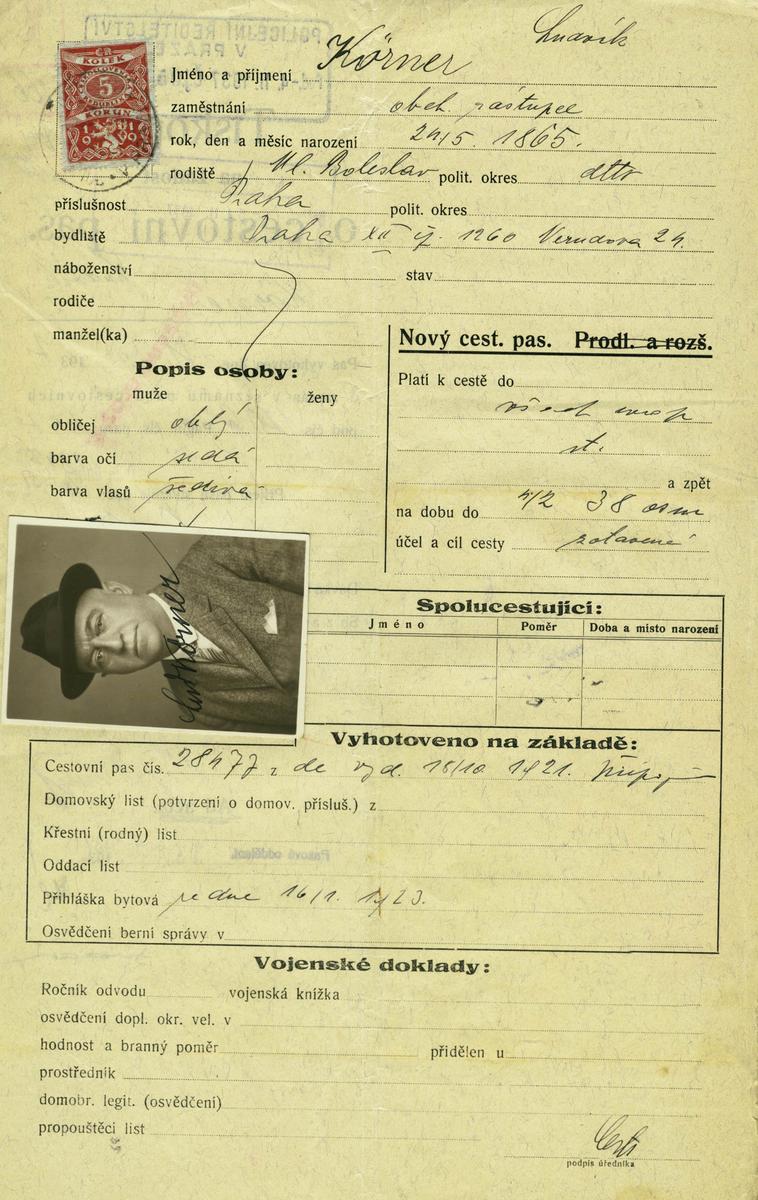 Körner Ludvík
Jméno a příjmení
zaměstnání obch. zástupce
rok, den a měsíc narození 24/5. 1865.
rodiště Ml. Boleslav polit. okres dtto
příslušnost Praha polit. okres
bydliště Praha XII čj. 1260 Verudova 24.
náboženství stav
rodiče
manžel(ka)
Nový cest. pas. Prodl. a rozš.
Popis osoby:
muže ženy
obličej oblý
barva očí šedá
barva vlasů šedivá
Platí k cestě do
všech evrop
st.
a zpět
na dobu do 4/2 38 osm
účel a cíl cesty zotavení
Spolucestující:
Jméno Poměr Doba a místo narození
Vyhotoveno na základě:
Cestovní pas čís. 28477 z de vyd. 18/10 1921.
Domovský list (potvrzení o domov. přísluš.) z
Křestní (rodný) list
Oddací list
Přihláška bytová ze dne 16/1. 1923.
Osvědčení berní správy v
Vojenské doklady:
Ročník odvodu vojenská knížka
osvědčení dopl. okr. vel. v
hodnost a branný poměr přidělen u
prostředník
domobr. legit. (osvědčení)
propouštěcí list
podpis úředníka
ČR
KOLEK
5
KORUN